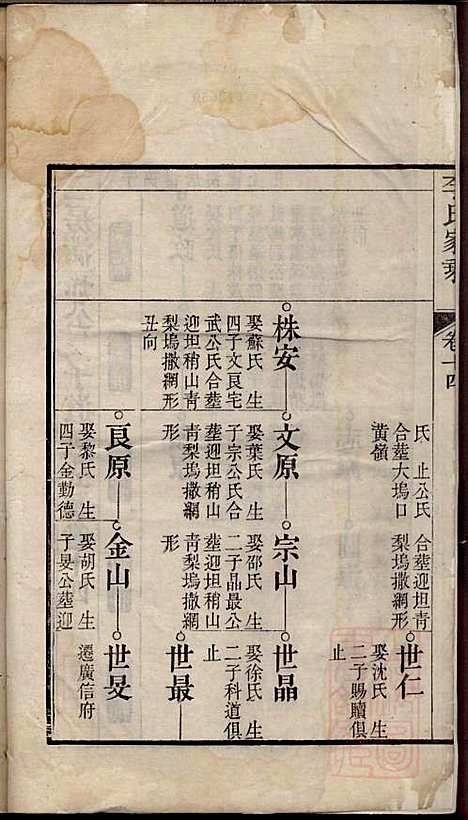 李氏家乘
卷十四
氏 止公氏
合塟大塢口
黃嶺
合塟迎坦青
梨塢撒網形
世仁
娶沈氏 生
二子賜贖俱
止
株安
娶蘇氏 生
四子文良宅
武公氏合塟
迎坦稍山青
梨塢撒網形
丑向
文原
娶葉氏 生
子宗公氏合
塟迎坦稍山
青梨塢撒網
形
宗山
娶邵氏 生
二子晶最公
塟迎坦稍山
青梨塢撒網
形
世晶
娶徐氏 生
二子科道俱
止
世最
良原
娶黎氏 生
四子金勤德
金山
娶胡氏 生
子旻公塟迎
世旻
遷廣信府